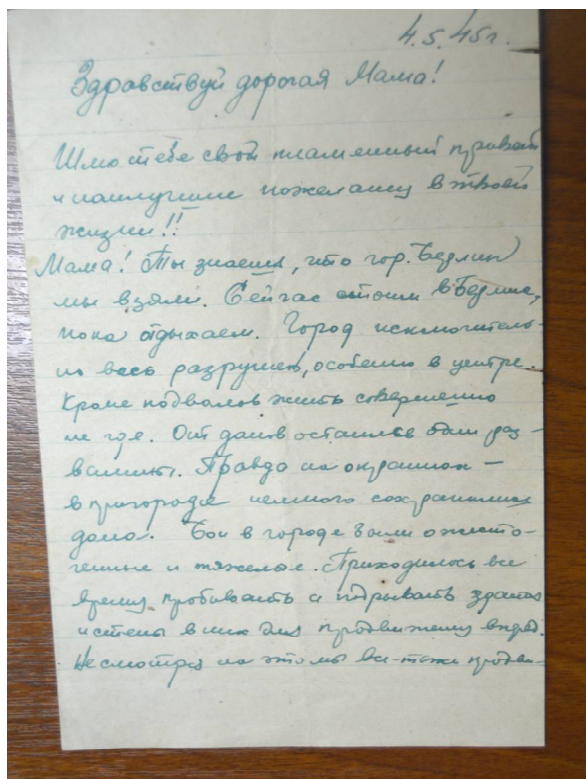 4.5.45г.
Здравствуй дорогая Мама!
Шлю тебе свой пламенный привет
и наилучшие пожелания в твоей
жизни!!
Мама! Ты знаешь, что гор. Берлин
мы взяли. Сейчас стоим в Берлине,
пока отдыхаем. Город исключитель-
но весь разрушен, особенно в центре.
Кроме подвалов жить совершенно
не где. От домов остались одни раз-
валины. Правда на окраинах —
в пригороде немного сохранились
дома. Бои в городе были ожесто-
ченные и тяжелые. Приходилось все
время пробивать и подрывать здания
и стены в них для продвижения вперед.
Не смотря на это мы все-таки продви-